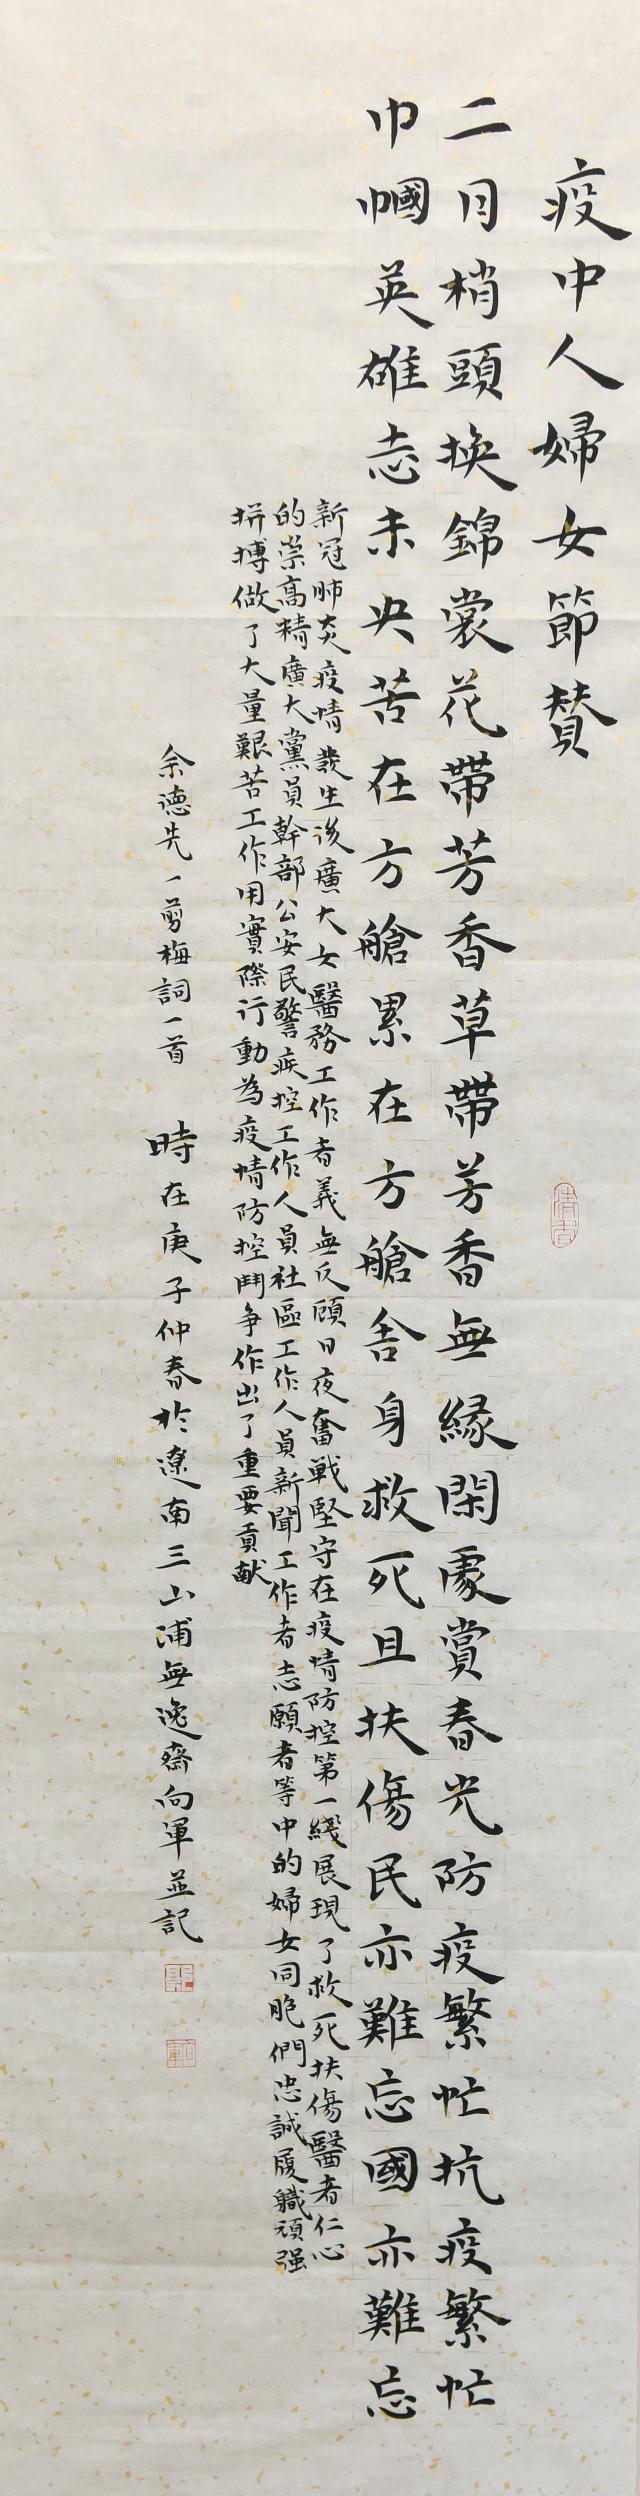 疫中人婦女節贊
二月梢頭換錦裳花帶芳香草帶芳香無緣閑處賞春光防疫繁忙抗疫繁忙
巾幗英雄志未央苦在方艙累在方艙舍身救死且扶傷民亦難忘國亦難忘
新冠肺炎疫情發生後廣大女醫務工作者義無反顧日夜奮戰堅守在疫情防控第一綫展現了救死扶傷醫者仁心
的崇高精廣大黨員幹部公安民警疾控工作人員社區工作人員新聞工作者志願者等中的婦女同胞們忠誠履職頑强
拼搏做了大量艱苦工作用實際行動為疫情防控鬥争作出了重要貢献
余德先一剪梅詞一首 時在庚子仲春於遼南三山浦無逸齋向軍並記